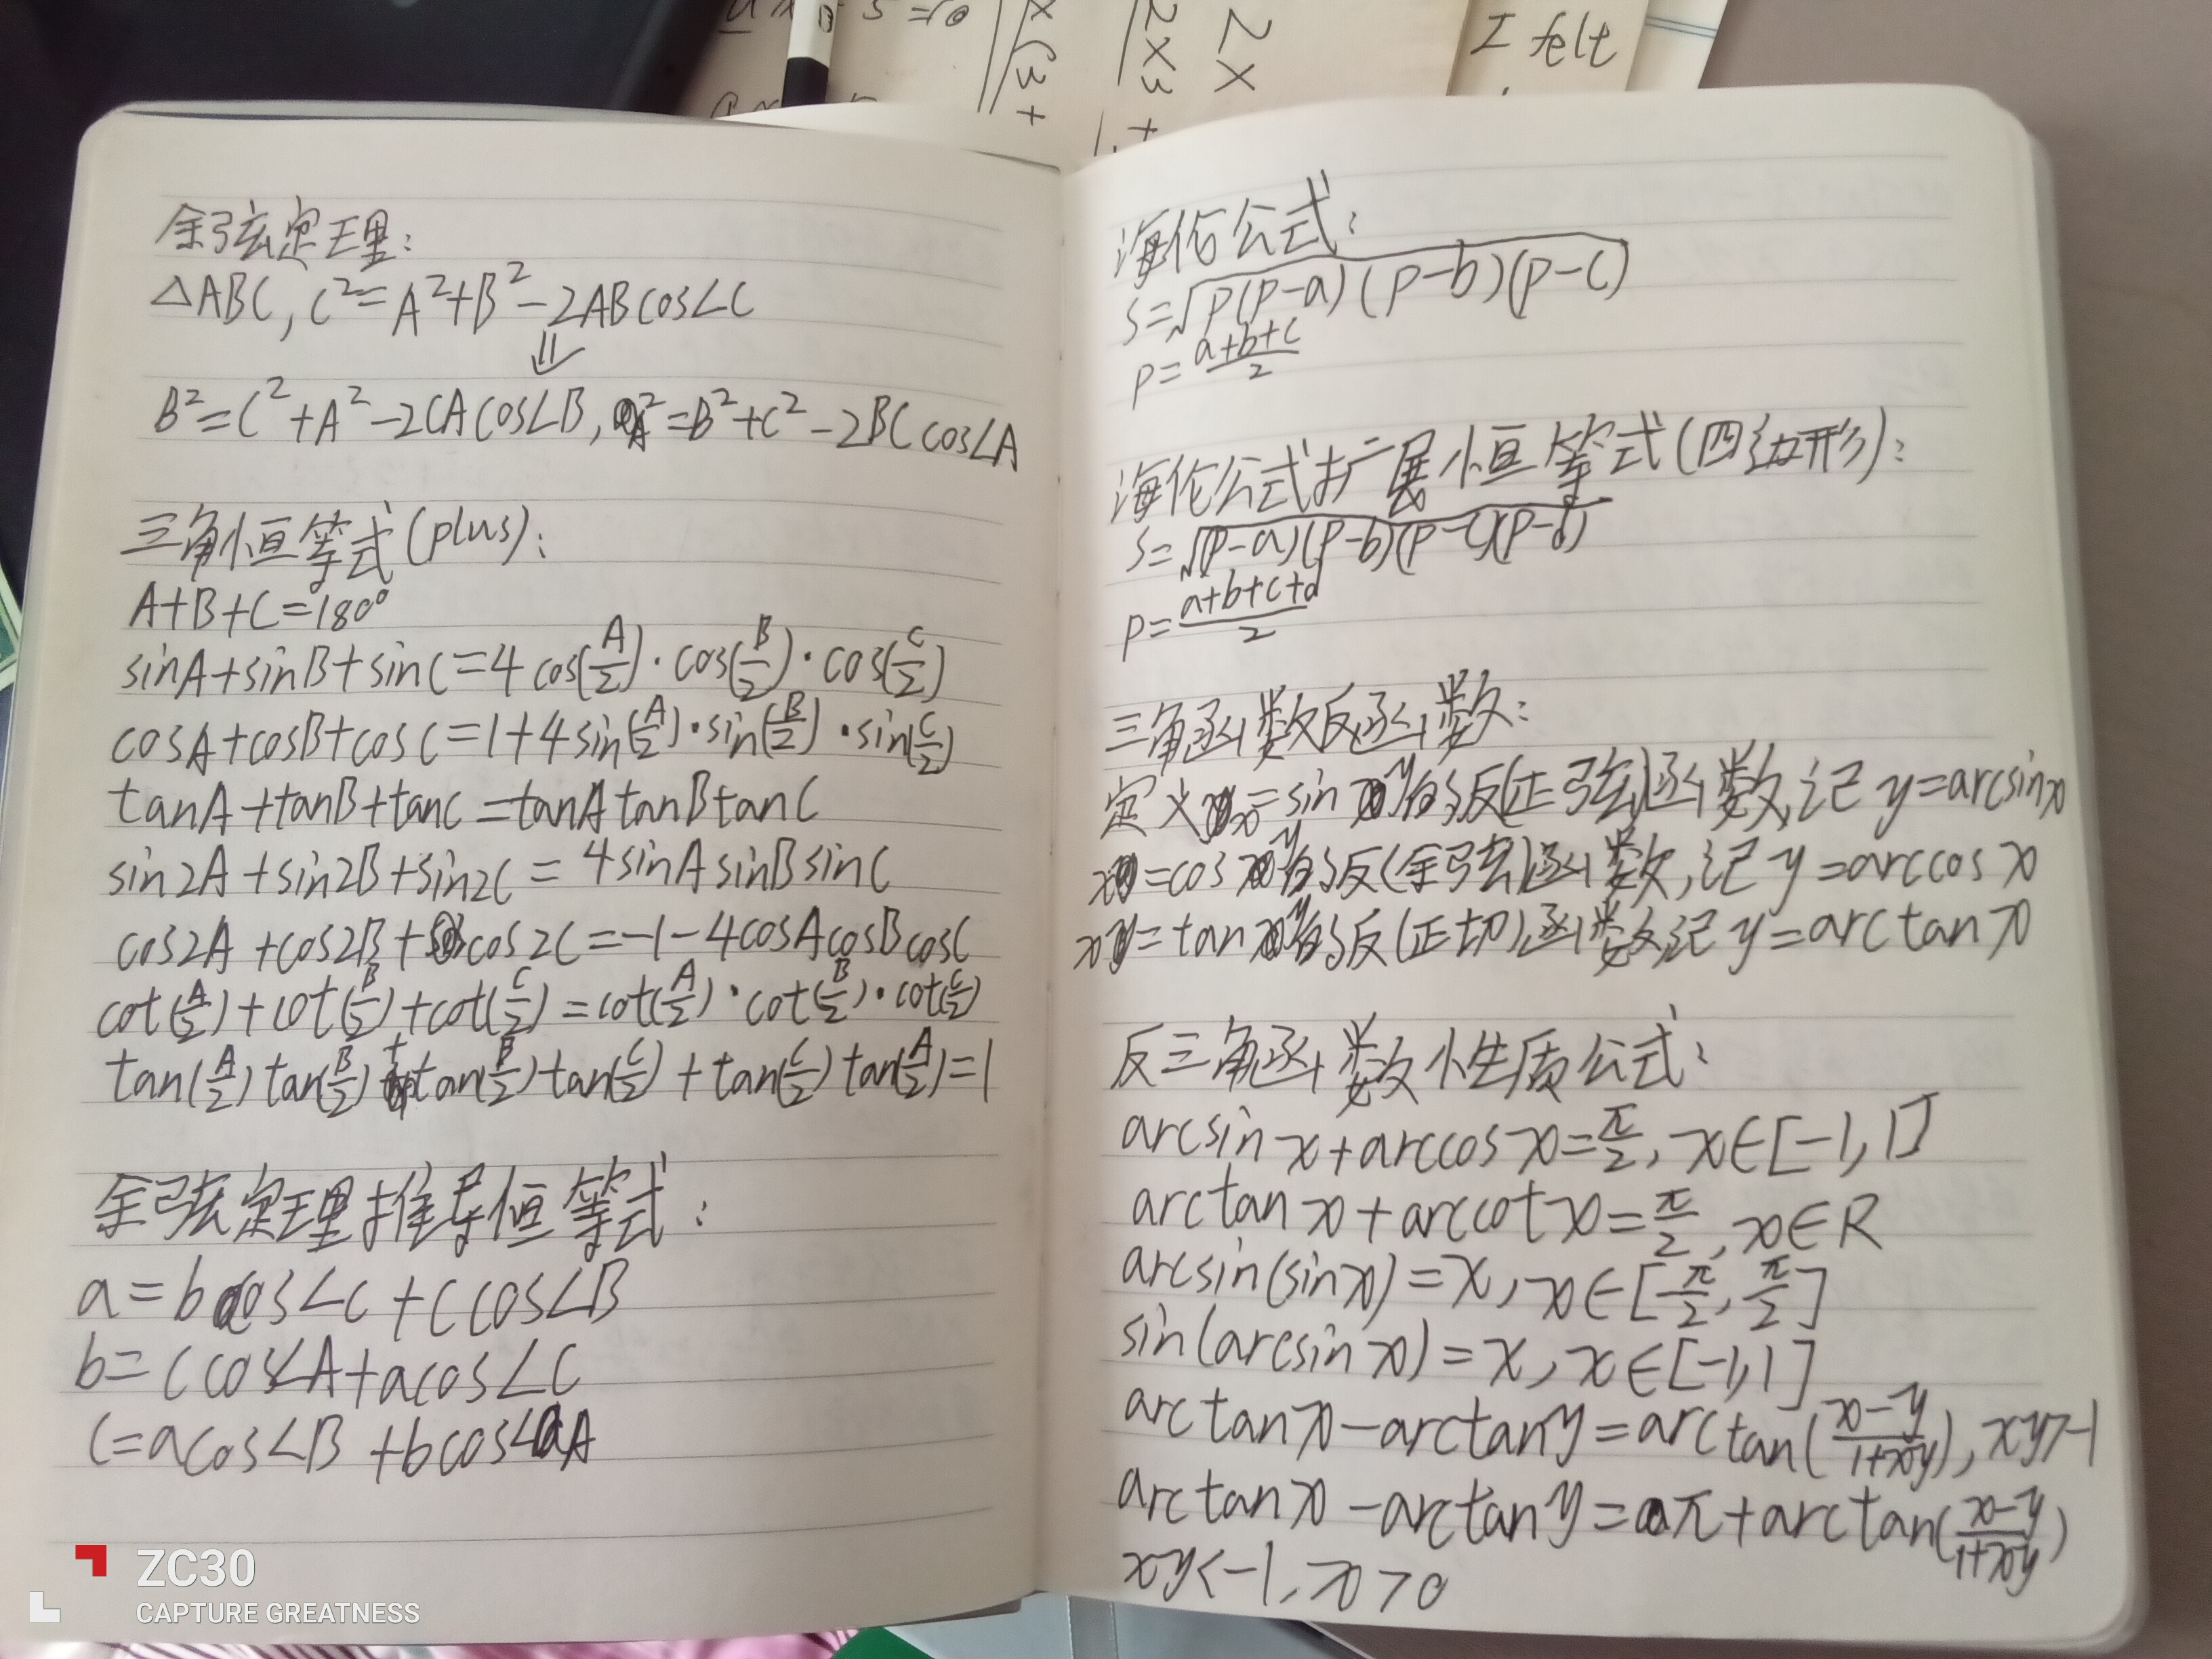 2x
2x3+
x(3+
I felt
余弦定理:
△ABC, C²=A²+B²-2ABcos∠C
⇓
B²=C²+A²-2CAcos∠B, A²=B²+C²-2BCcos∠A
三角恒等式(plus):
A+B+C=180°
sinA+sinB+sinC=4cos(A/2)·cos(B/2)·cos(C/2)
cosA+cosB+cosC=1+4sin(A/2)·sin(B/2)·sin(C/2)
tanA+tanB+tanC=tanAtanBtanC
sin2A+sin2B+sin2C=4sinAsinBsinC
cos2A+cos2B+cos2C=-1-4cosAcosBcosC
cot(A/2)+cot(B/2)+cot(C/2)=cot(A/2)·cot(B/2)·cot(C/2)
tan(A/2)tan(B/2)+tan(B/2)tan(C/2)+tan(C/2)tan(A/2)=1
余弦定理推导恒等式:
a=bcos∠C+ccos∠B
b=ccos∠A+acos∠C
c=acos∠B+bcos∠A
海伦公式:
s=√(p(p-a)(p-b)(p-c))
p=(a+b+c)/2
海伦公式扩展恒等式(四边形):
s=√((p-a)(p-b)(p-c)(p-d))
p=(a+b+c+d)/2
三角函数反函数:
定义x=siny的反(正弦)函数,记y=arcsinx
x=cosy的反(余弦)函数,记y=arccosx
x=tany的反(正切)函数,记y=arctanx
反三角函数性质公式:
arcsinx+arccosx=π/2, x∈[-1,1]
arctanx+arccotx=π/2, x∈R
arcsin(sinx)=x, x∈[-π/2, π/2]
sin(arcsinx)=x, x∈[-1,1]
arctanx-arctany=arctan((x-y)/(1+xy)), xy>-1
arctanx-arctany=π+arctan((x-y)/(1+xy))
xy<-1, x>0
ZC30
CAPTURE GREATNESS